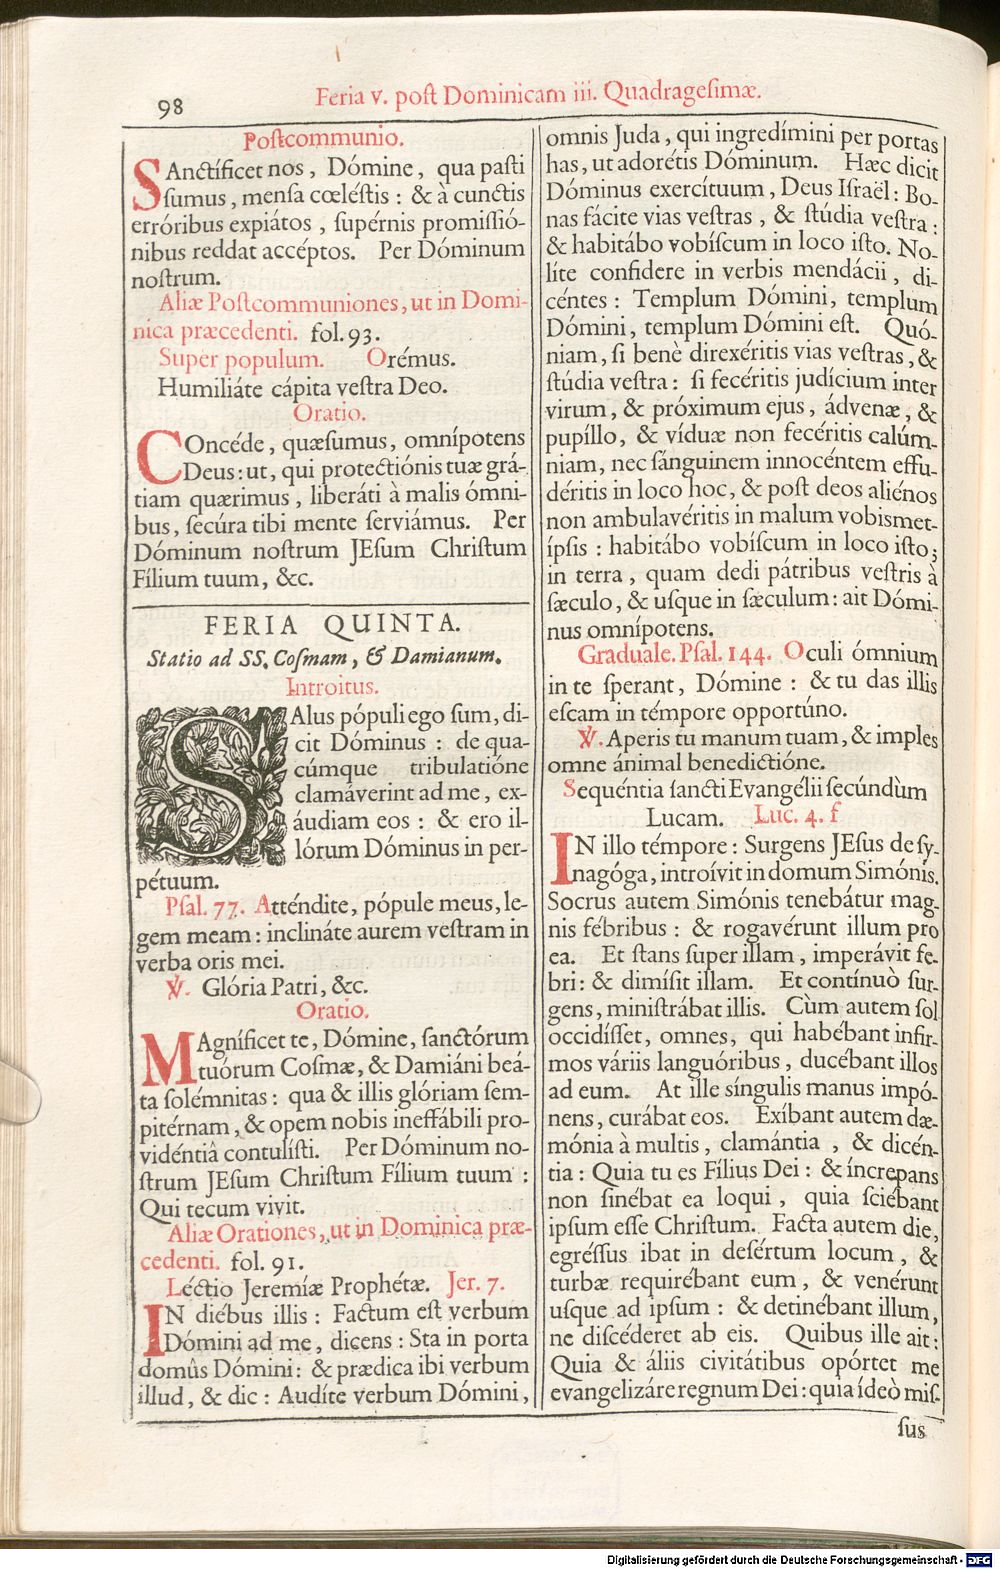 98
Feria v. poſt Dominicam iii. Quadrageſimæ.
Poſtcommunio.
SAnctíficet nos, Dómine, qua paſti
ſumus, menſa cœléſtis: & à cunctis
erróribus expiátos, ſupérnis promiſſió-
nibus reddat accéptos. Per Dóminum
noſtrum.
Aliæ Poſtcommuniones, ut in Domi-
nica præcedenti. fol. 93.
Super populum. Orémus.
Humiliáte cápita veſtra Deo.
Oratio.
COncéde, quæſumus, omnípotens
Deus: ut, qui protectiónis tuæ grá-
tiam quærimus, liberáti à malis ómni-
bus, ſecúra tibi mente ſerviámus. Per
Dóminum noſtrum JEſum Chriſtum
Fílium tuum, &c.
FERIA QUINTA.
Statio ad SS. Coſmam, & Damianum.
Introitus.
SAlus pópuli ego ſum, di-
cit Dóminus: de qua-
cúmque tribulatióne
clamáverint ad me, ex-
áudiam eos: & ero il-
lórum Dóminus in per-
pétuum.
Pſal. 77. Atténdite, pópule meus, le-
gem meam: inclináte aurem veſtram in
verba oris mei.
℣. Glória Patri, &c.
Oratio.
MAgníficet te, Dómine, ſanctórum
tuórum Coſmæ, & Damiáni beá-
ta ſolémnitas: qua & illis glóriam ſem-
pitérnam, & opem nobis ineffábili pro-
vidéntiâ contulíſti. Per Dóminum no-
ſtrum JEſum Chriſtum Fílium tuum:
Qui tecum vivit.
Aliæ Orationes, ut in Dominica præ-
cedenti. fol. 91.
Léctio Jeremíæ Prophétæ. Jer. 7.
IN diébus illis: Factum eſt verbum
Dómini ad me, dicens: Sta in porta
domûs Dómini: & prædica ibi verbum
illud, & dic: Audíte verbum Dómini,
omnis Juda, qui ingredímini per portas
has, ut adorétis Dóminum. Hæc dicit
Dóminus exercítuum, Deus Iſraël: Bo-
nas fácite vias veſtras, & ſtúdia veſtra:
& habitábo vobíſcum in loco iſto. No-
líte confidere in verbis mendácii, di-
céntes: Templum Dómini, templum
Dómini, templum Dómini eſt. Quó-
niam, ſi benè direxéritis vias veſtras, &
ſtúdia veſtra: ſi fecéritis judícium inter
virum, & próximum ejus, ádvenæ, &
pupíllo, & víduæ non fecéritis calúm-
niam, nec ſánguinem innocéntem effu-
déritis in loco hoc, & poſt deos aliénos
non ambulavéritis in malum vobismet-
ípſis: habitábo vobíſcum in loco iſto;
in terra, quam dedi pátribus veſtris à
ſæculo, & uſque in ſæculum: ait Dómi-
nus omnípotens.
Graduale. Pſal. 144. Oculi ómnium
in te ſperant, Dómine: & tu das illis
eſcam in témpore opportúno.
℣. Aperis tu manum tuam, & imples
omne ánimal benedictióne.
Sequéntia ſancti Evangélii ſecúndùm
Lucam. Luc. 4. f
IN illo témpore: Surgens JEſus de ſy-
nagóga, introívit in domum Simónis.
Socrus autem Simónis tenebátur mag-
nis fébribus: & rogavérunt illum pro
ea. Et ſtans ſuper illam, imperávit fe-
bri: & dimíſit illam. Et contínuò ſur-
gens, miniſtrábat illis. Cùm autem ſol
occidíſſet, omnes, qui habébant infir-
mos váriis languóribus, ducébant illos
ad eum. At ille síngulis manus impó-
nens, curábat eos. Exíbant autem dæ-
mónia à multis, clamántia, & dicén-
tia: Quia tu es Fílius Dei: & íncrepans
non ſinébat ea loqui, quia ſciébant
ipſum eſſe Chriſtum. Facta autem die,
egréſſus ibat in deſértum locum, &
turbæ requirébant eum, & venérunt
uſque ad ipſum: & detinébant illum,
ne diſcéderet ab eis. Quibus ille ait:
Quia & áliis civitátibus opórtet me
evangelizáre regnum Dei: quia ídeò miſ-
ſus
Digitalisierung gefördert durch die Deutsche Forschungsgemeinschaft - DFG